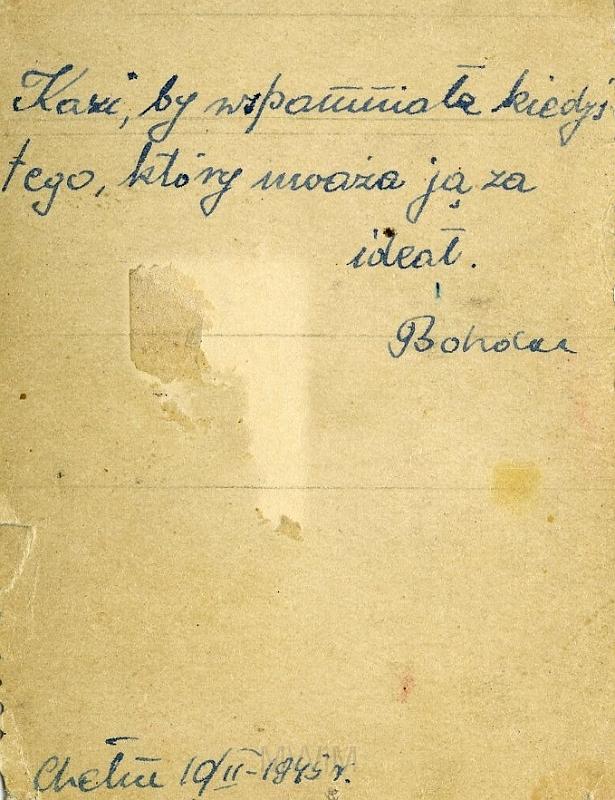 Kazi, by wspomniała kiedyś
tego, który uważa ją za
ideał.
Bohdan
Chełm 10/II-1945 r.
MWiM